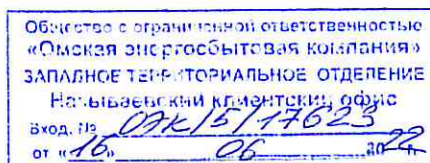 Общество с ограниченной ответственностью
«Омская энергосбытовая компания»
ЗАПАДНОЕ ТЕРРИТОРИАЛЬНОЕ ОТДЕЛЕНИЕ
Называевский клиентский офис
Вход. № ОЭК/5/17623
от «16» 06 2022 г.